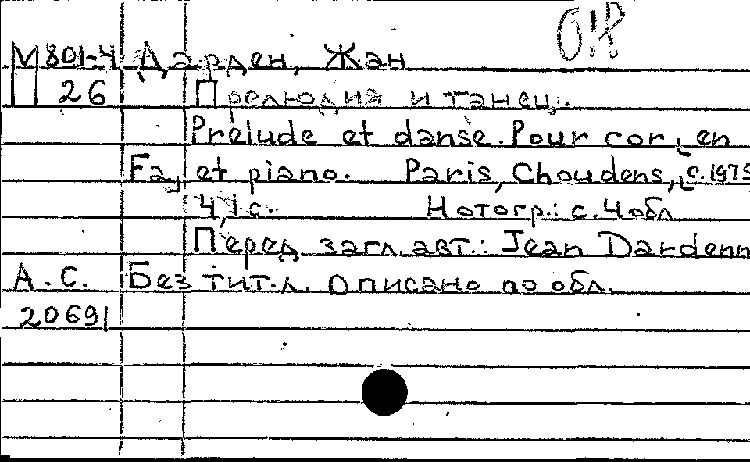 ОНР
М801-4 Дарден, Жан
П 26 Прелюдия и танец.
Prélude et danse. Pour cor, en
Fa, et piano. Paris, Choudens, с.1975
4,1 с. Нотогр.: с. 4 обл
Перед загл. авт.: Jean Dardenn
А.С. Без тит.л. Описано по обл.
20691